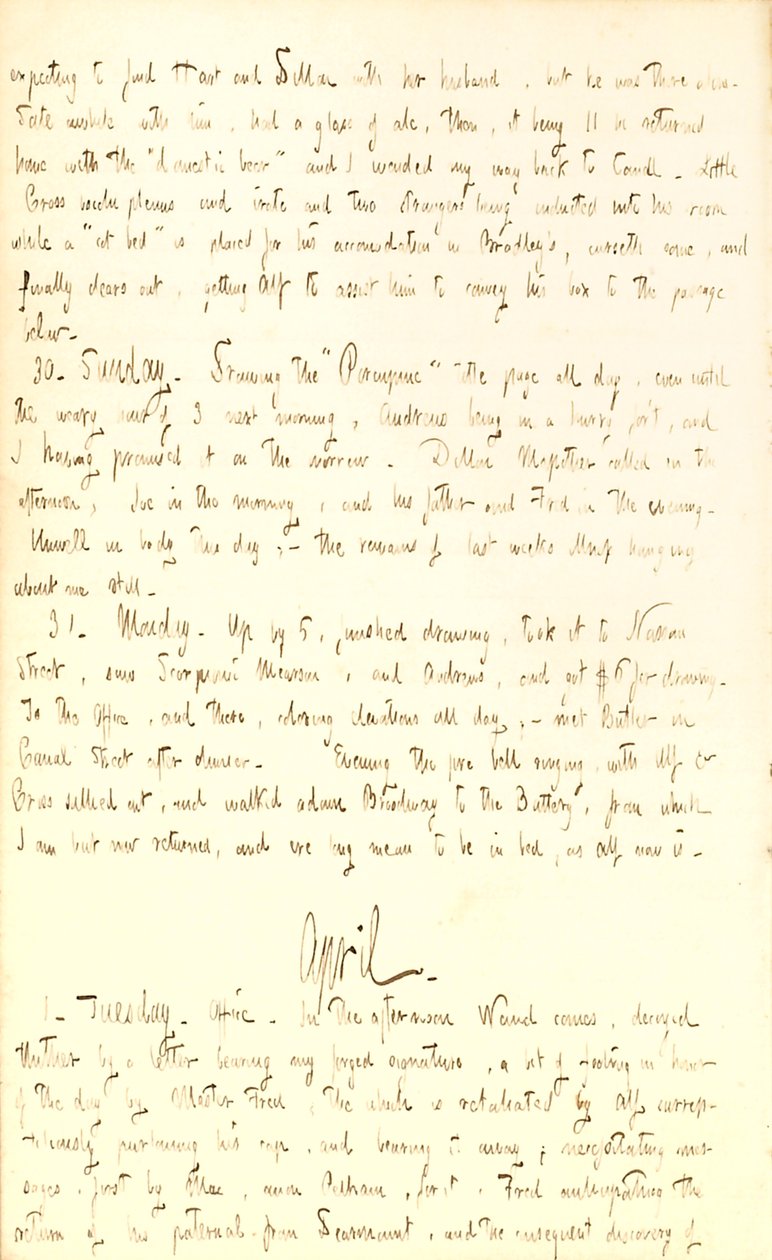 expecting to find Hart and Dillon with her husband, but he was there alone.
Sate awhile with him, had a glass of ale, then, it being 11 he returned
home with the "domestic beer" and I wended my way back to Canal. Little
Cross vocdu plenus and irate and two strangers being inducted into his room
while a "cot bed" is placed for his accomodation in Bradley's, curseth some, and
finally clears out, getting Alf to assist him to convey his box to the passage
below.
30. Sunday. Drawing the "Porcupine" title page all day, even until
the weary hour of 3 next morning, Andrews being in a hurry for't, and
I having promised it on the morrow. Dillon Mapother called in the
afternoon, Joe in the morning, and his father and Fred in the evening.
Unwell in body this day;- the remains of last weeks illness hanging
about me still.
31. Monday. Up by 5, finished drawing, took it to Nassau
Street, saw and Andrews, and got $6 for drawing.
To the Office, and there, coloring elevations all day;- met Butler in
Canal Street after dinner. Evening the fire bell ringing, with Alf &
Cross sallied out, and walked adown Broadway to the Battery, from which
I am but now returned, and ere long mean to be in bed, as Alf now is.
April.
1. Tuesday. Office. In the afternoon Waud comes, decoyed
thither by a letter bearing my forged signature, a bit of fooling in honor
of the day by Master Fred, the which is retaliated by Alf surrep-
titiously purloining his cap, and bearing it away; negotiating mes-
sages, first by Mac, anon Pelham, for it, Fred anticipating the
return of his paternal from Dearmount, and the consequent discovery of